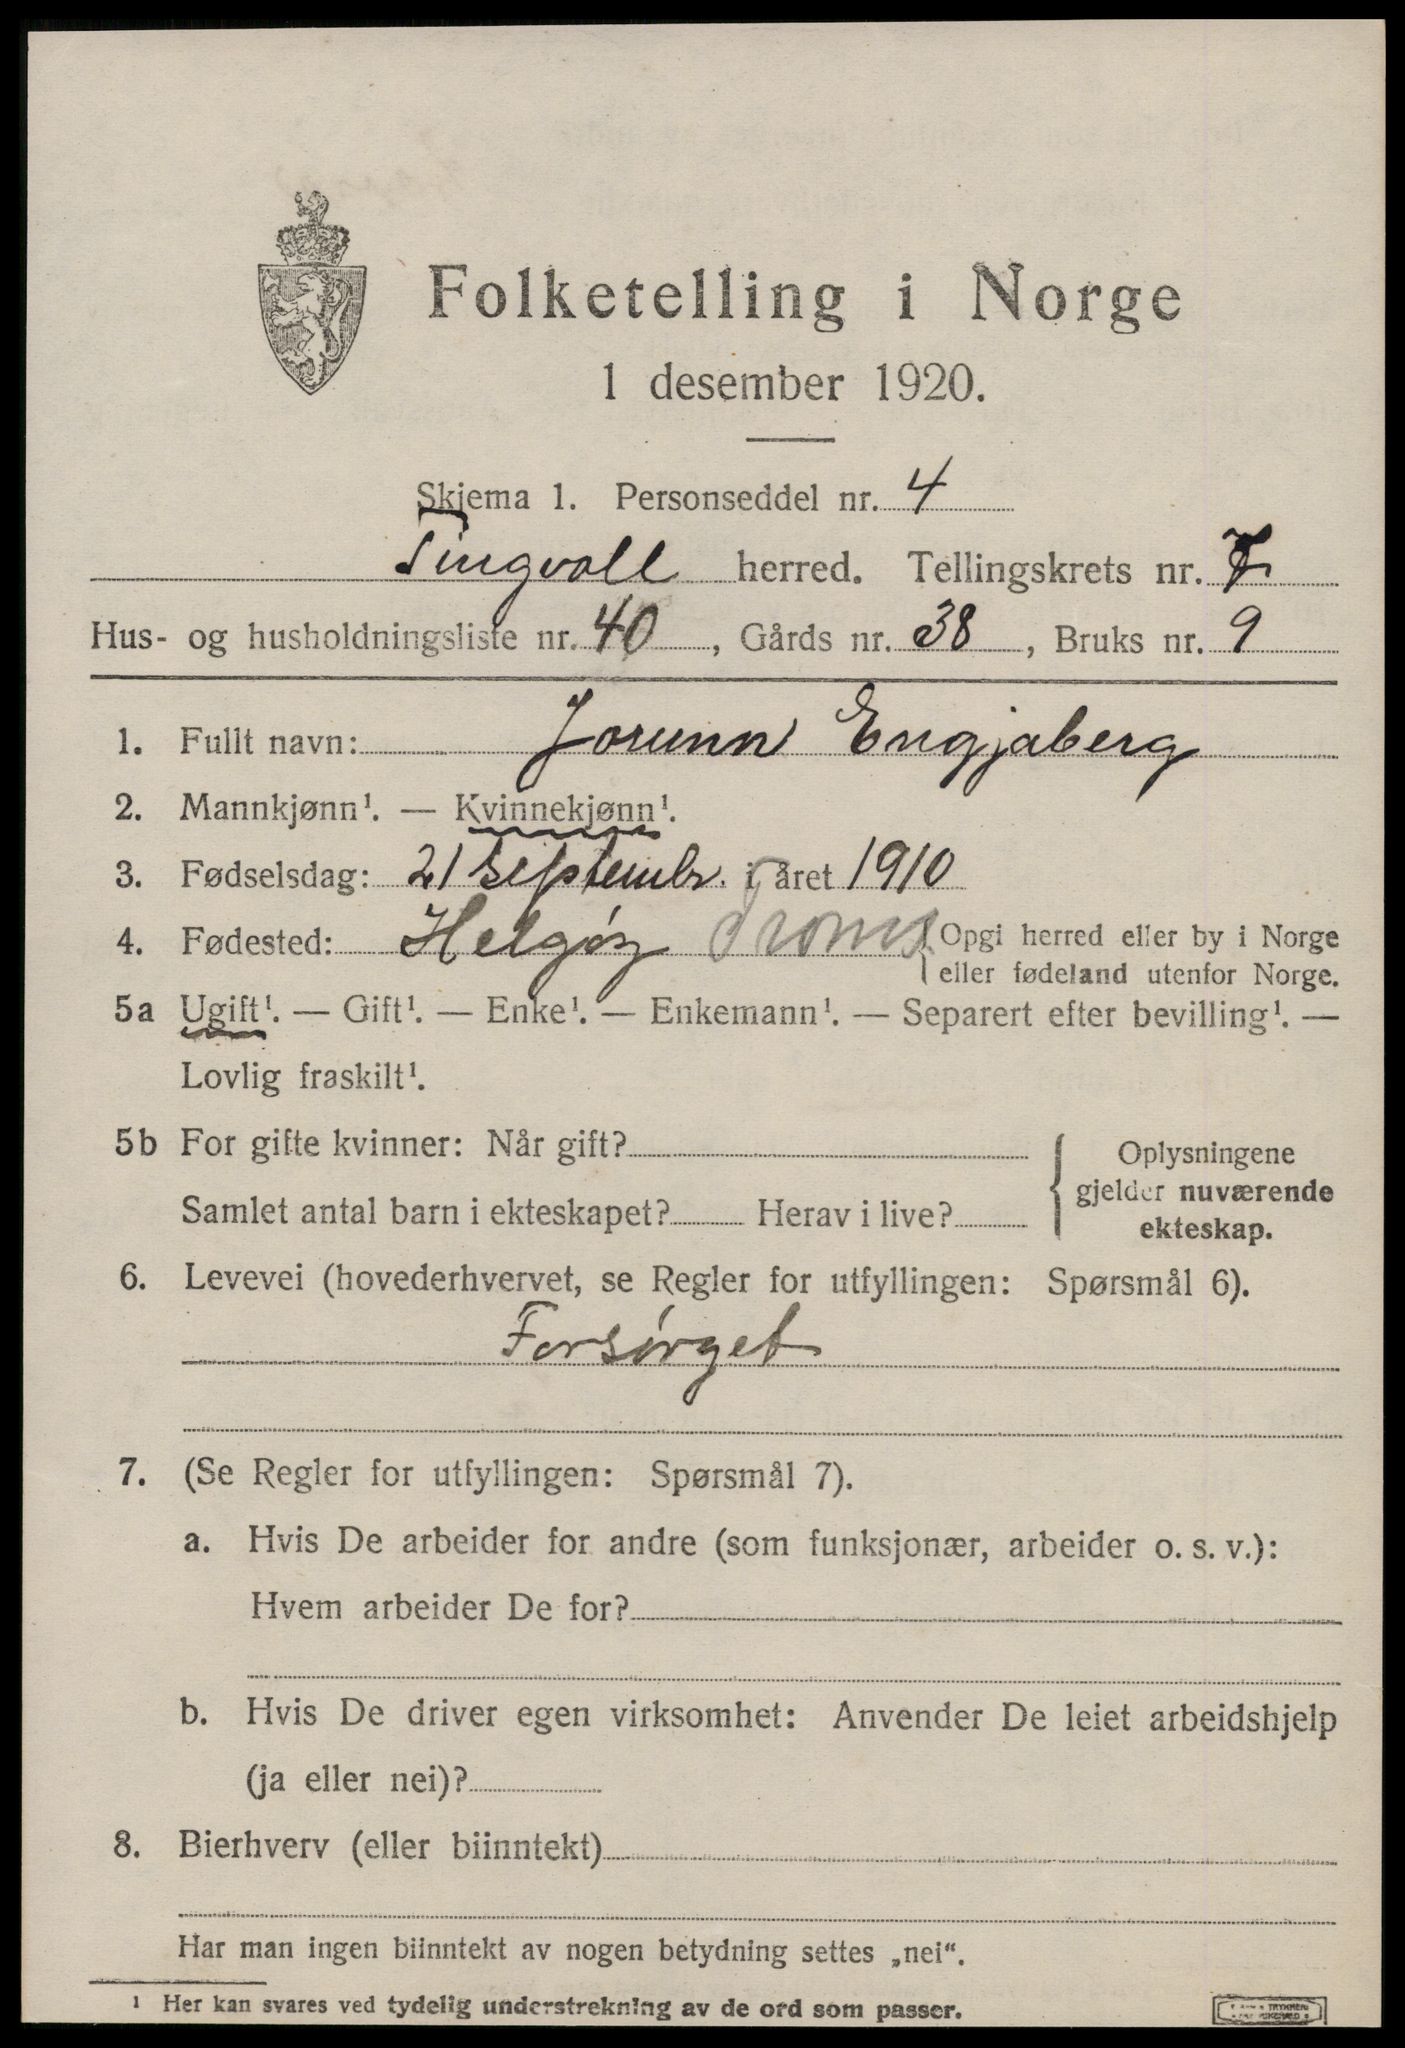 Folketelling i Norge
1 desember 1920.
Skjema 1. Personseddel nr. 4
Tingvoll herred. Tellingskrets nr. 7
Hus- og husholdningsliste nr. 40, Gårds nr. 38, Bruks nr. 9
1. Fullt navn: Jorunn Engjaberg
2. Mannkjønn¹. — Kvinnekjønn¹.
3. Fødselsdag: 21 septembr. i året 1910
4. Fødested: Helgøy Troms { Opgi herred eller by i Norge
eller fødeland utenfor Norge.
5a Ugift¹. — Gift¹. — Enke¹. — Enkemann¹. — Separert efter bevilling¹. —
Lovlig fraskilt¹.
5b For gifte kvinner: Når gift?
Samlet antal barn i ekteskapet? Herav i live?
{ Oplysningene
gjelder nuværende
ekteskap.
6. Levevei (hovederhvervet, se Regler for utfyllingen: Spørsmål 6).
Forsørget
7. (Se Regler for utfyllingen: Spørsmål 7).
a. Hvis De arbeider for andre (som funksjonær, arbeider o. s. v.):
Hvem arbeider De for?
b. Hvis De driver egen virksomhet: Anvender De leiet arbeidshjelp
(ja eller nei)?
8. Bierhverv (eller biinntekt)
Har man ingen biinntekt av nogen betydning settes „nei“.
¹ Her kan svares ved tydelig understrekning av de ord som passer.